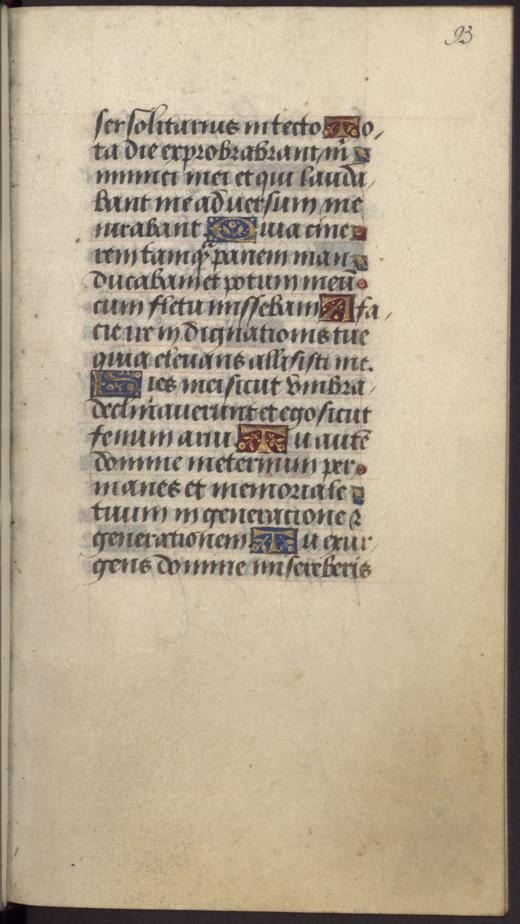 93
ser solitarius in tecto To
ta die exprobrabrant m̄
inimici mei et qui lauda
bant me adversum me
iurabant Quia cine
rem tamq̄ panem man
ducabam et potum meū
cum fletu miscebam A fa
cie ire indignationis tue
quia elevans allisisti me.
Dies mei sicut umbra
declinaverunt et ego sicut
fenum arui Tu autē
domine ineternum per
manes et memoriale
tuum in generatione ⁊
generationem Tu exur
gens domine misereberis